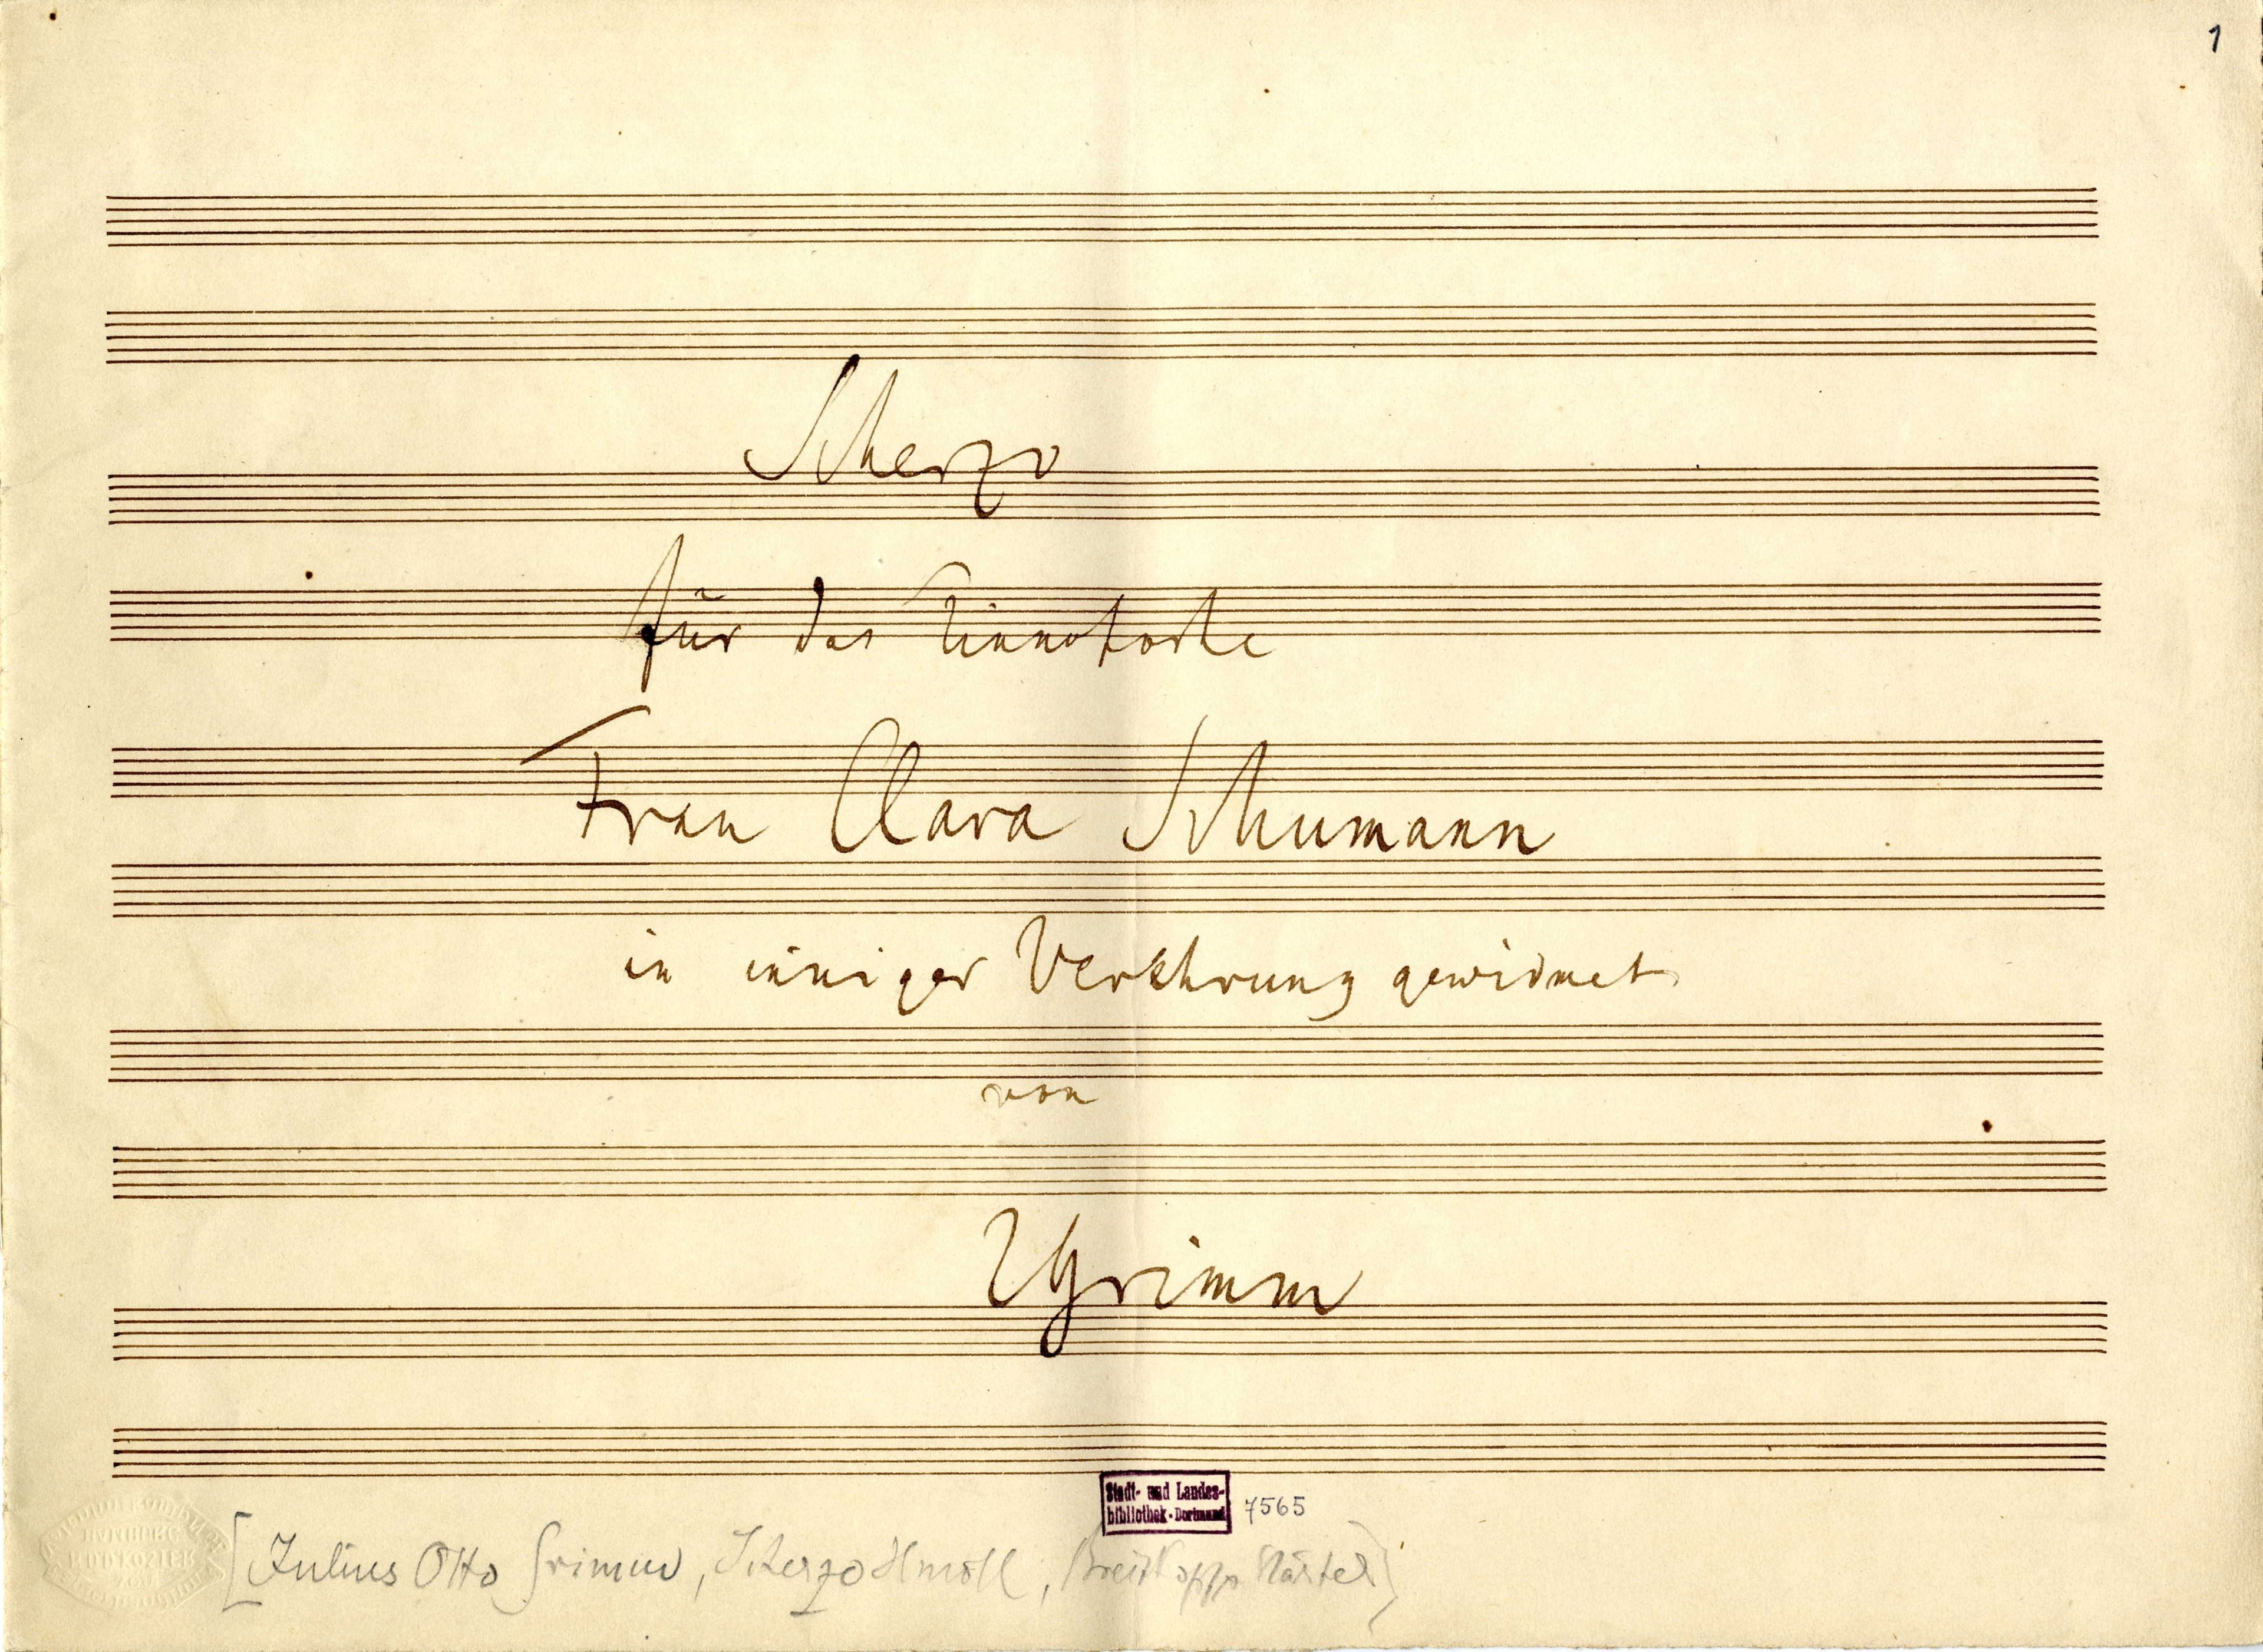 1
Scherzo
für das Pianoforte
Frau Clara Schumann
in inniger Verehrung gewidmet
von
JGrimm
Stadt- und Landes-
bibliothek - Dortmund
7565
[Julius Otto Grimm, Scherzo moll, Breitkopf Härtel]